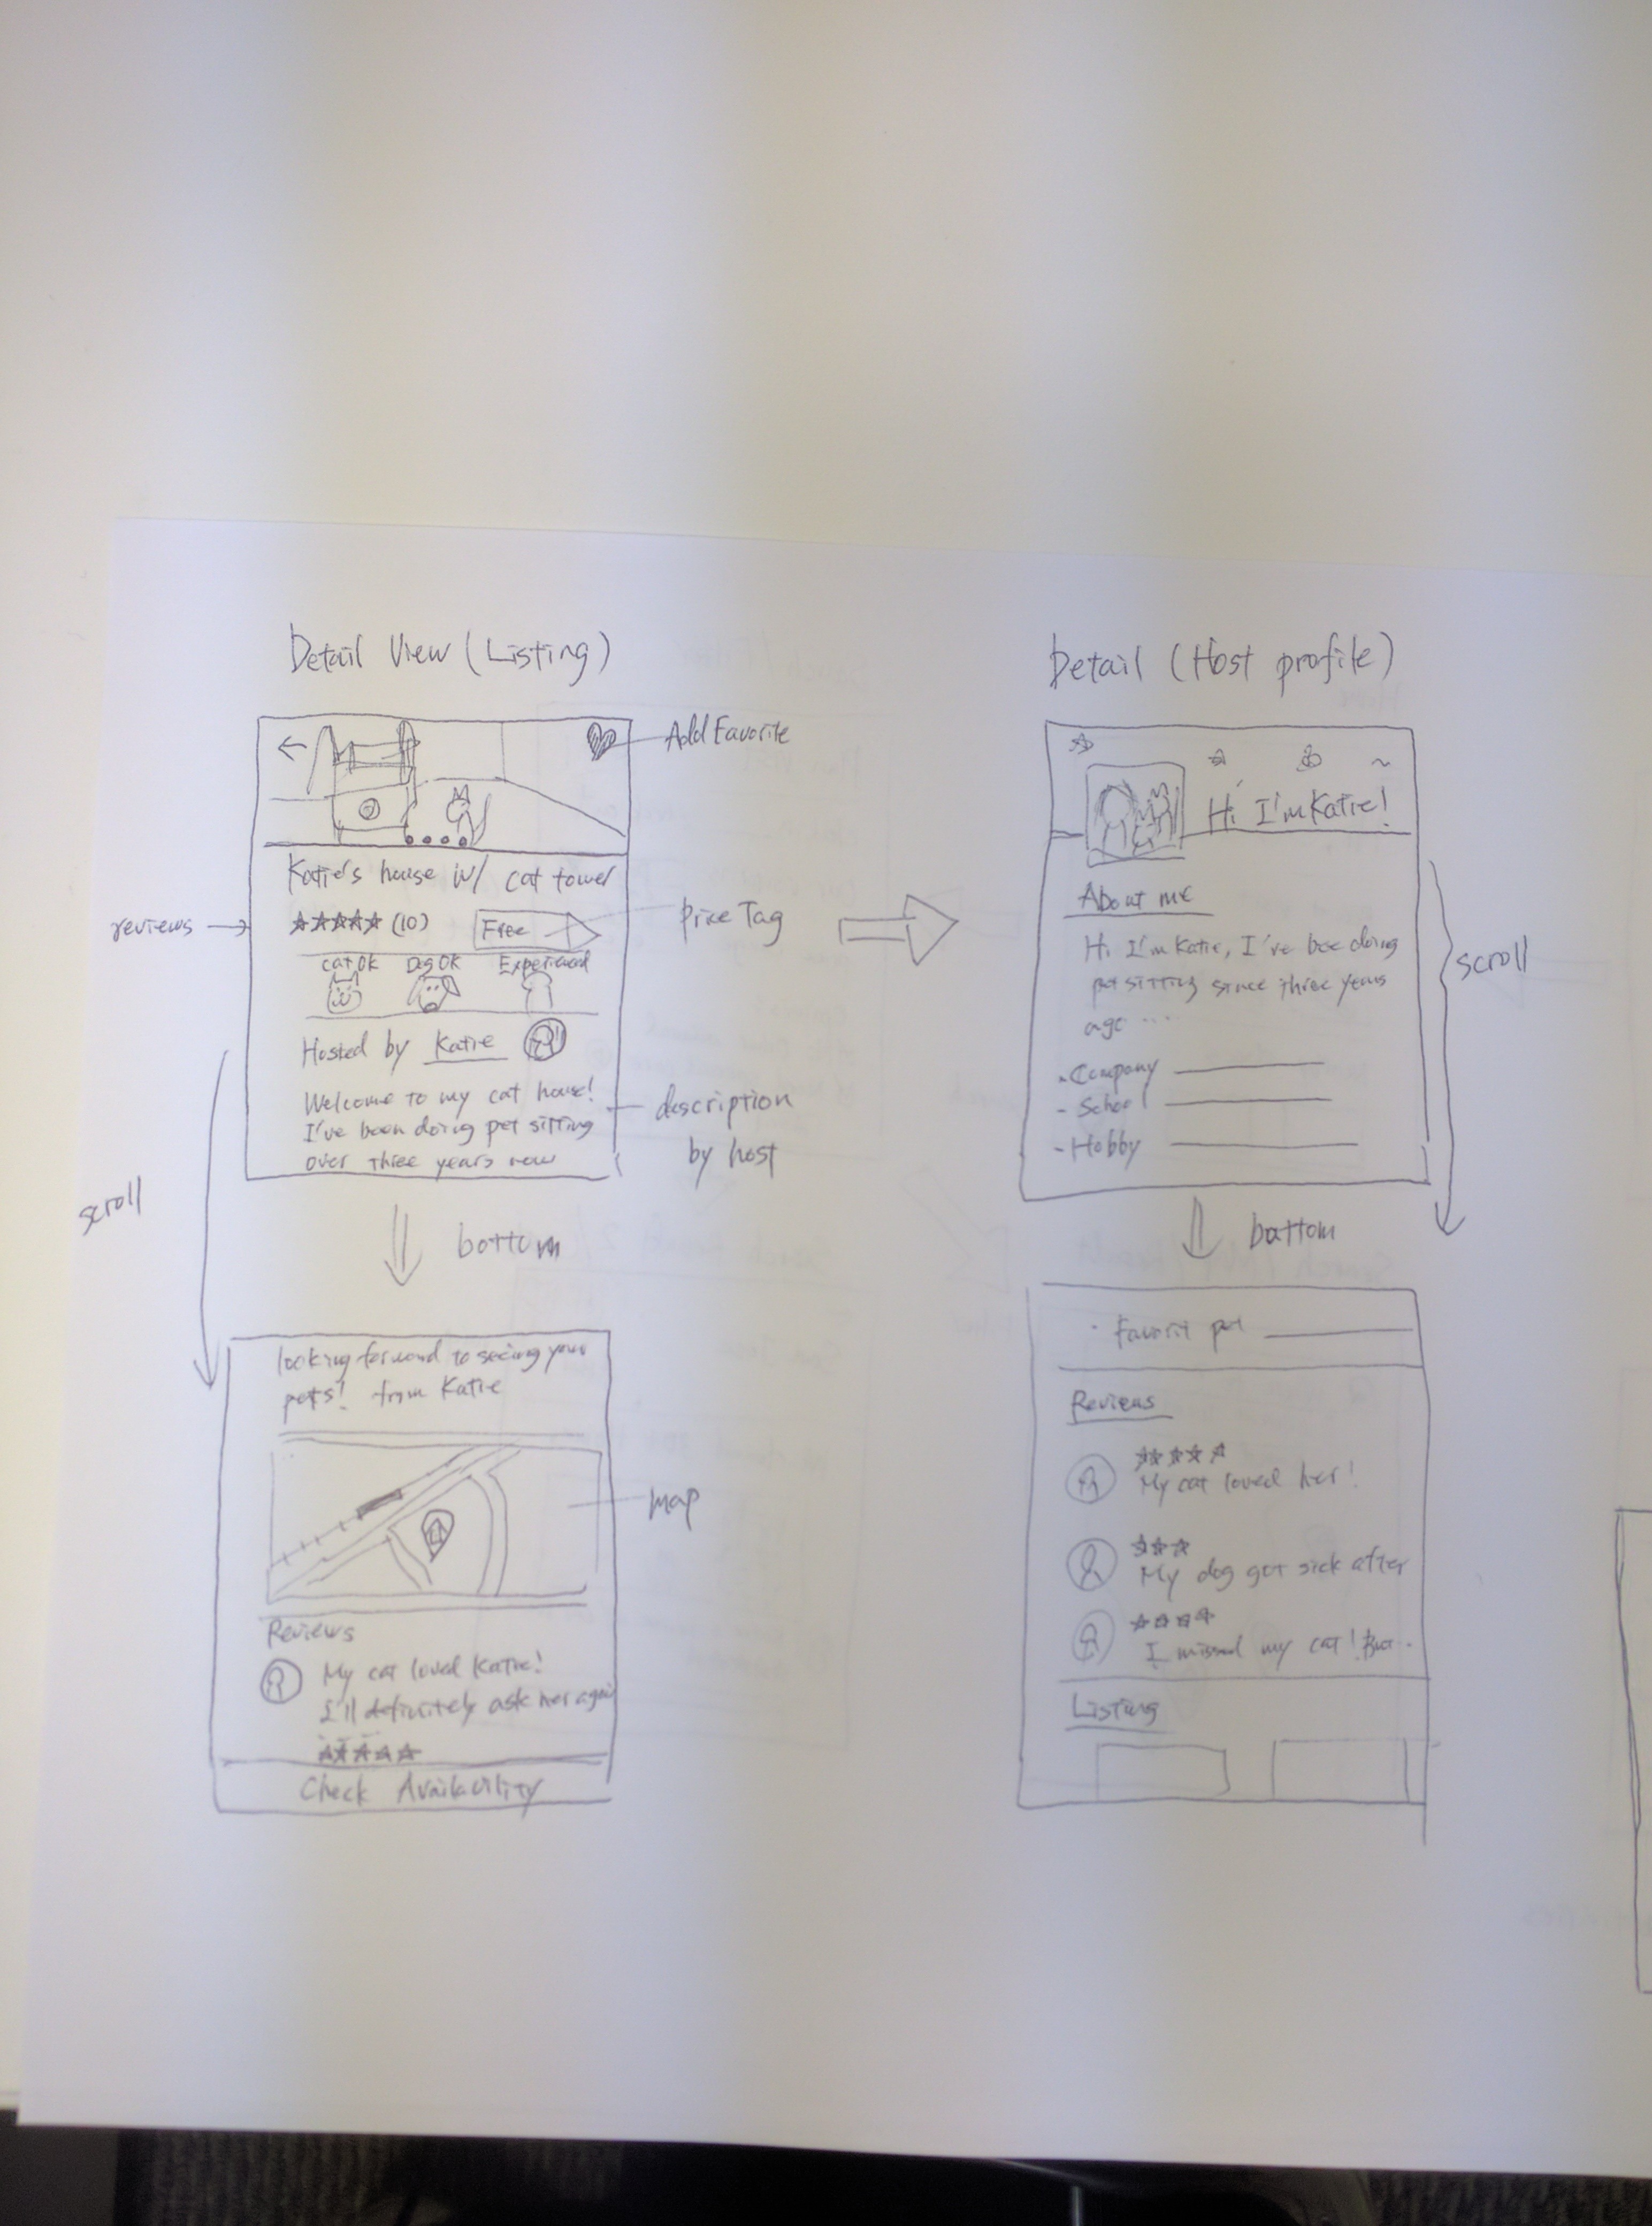 Detail View (Listing)
Add Favorite
Katie's house w/ cat tower
reviews
(10)
Free
Price Tag
Cat OK
Dog OK
Experienced
Hosted by Katie
Welcome to my cat house!
I've been doing pet sitting
over three years now
description
by host
scroll
bottom
looking forward to seeing your
pets! from Katie
map
Reviews
My cat loved Katie!
I'll definitely ask her again
Check Availability
Detail (Host profile)
Hi, I'm Katie!
About me
Hi I'm Katie, I've bee doing
pet sitting since three years
ago ....
- Company
- School
- Hobby
scroll
bottom
· Favorit pet
Reviews
My cat loved her!
My dog got sick after
I missed my cat! But..
Listing